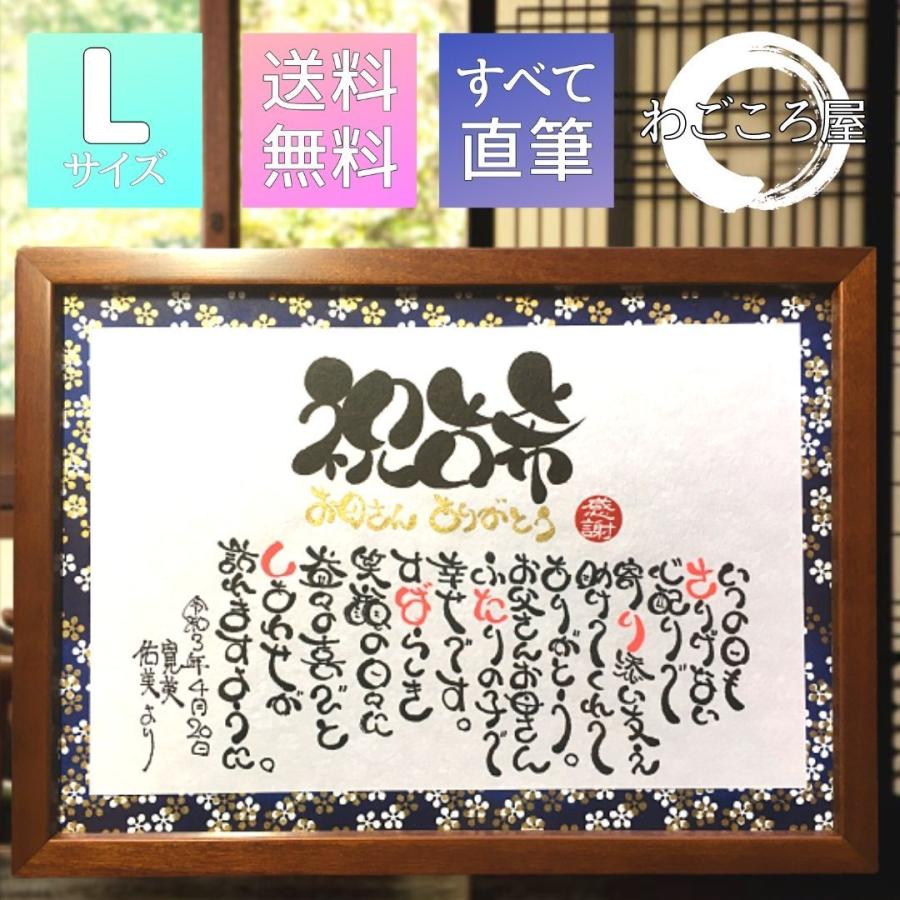 L
サイズ
送料
無料
すべて
直筆
わごころ屋
祝古希
お母さん ありがとう
感謝
いつの日も
さりげない
心配りで
寄り添い支え
助けてくれて
ありがとう。
お父さんお母さん
ふたりの子で
幸せです。
すばらしき
笑顔の日々に
益々の喜びと
しあわせが
訪れますように。
令和3年4月20日
寛英
佑美より